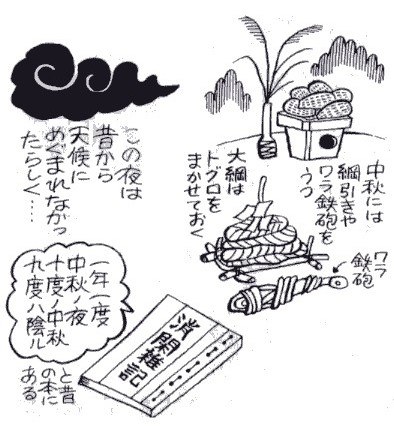 中秋には
綱引きや
ワラ鉄砲を
うつ
大綱は
トグロを
まかせておく
ワラ
鉄砲
この夜は
昔から
天候に
めぐまれなかっ
たらしく……
一年一度
中秋ノ夜
十度ノ中秋
九度ハ陰ル
と昔
の本に
ある
消閑雑記